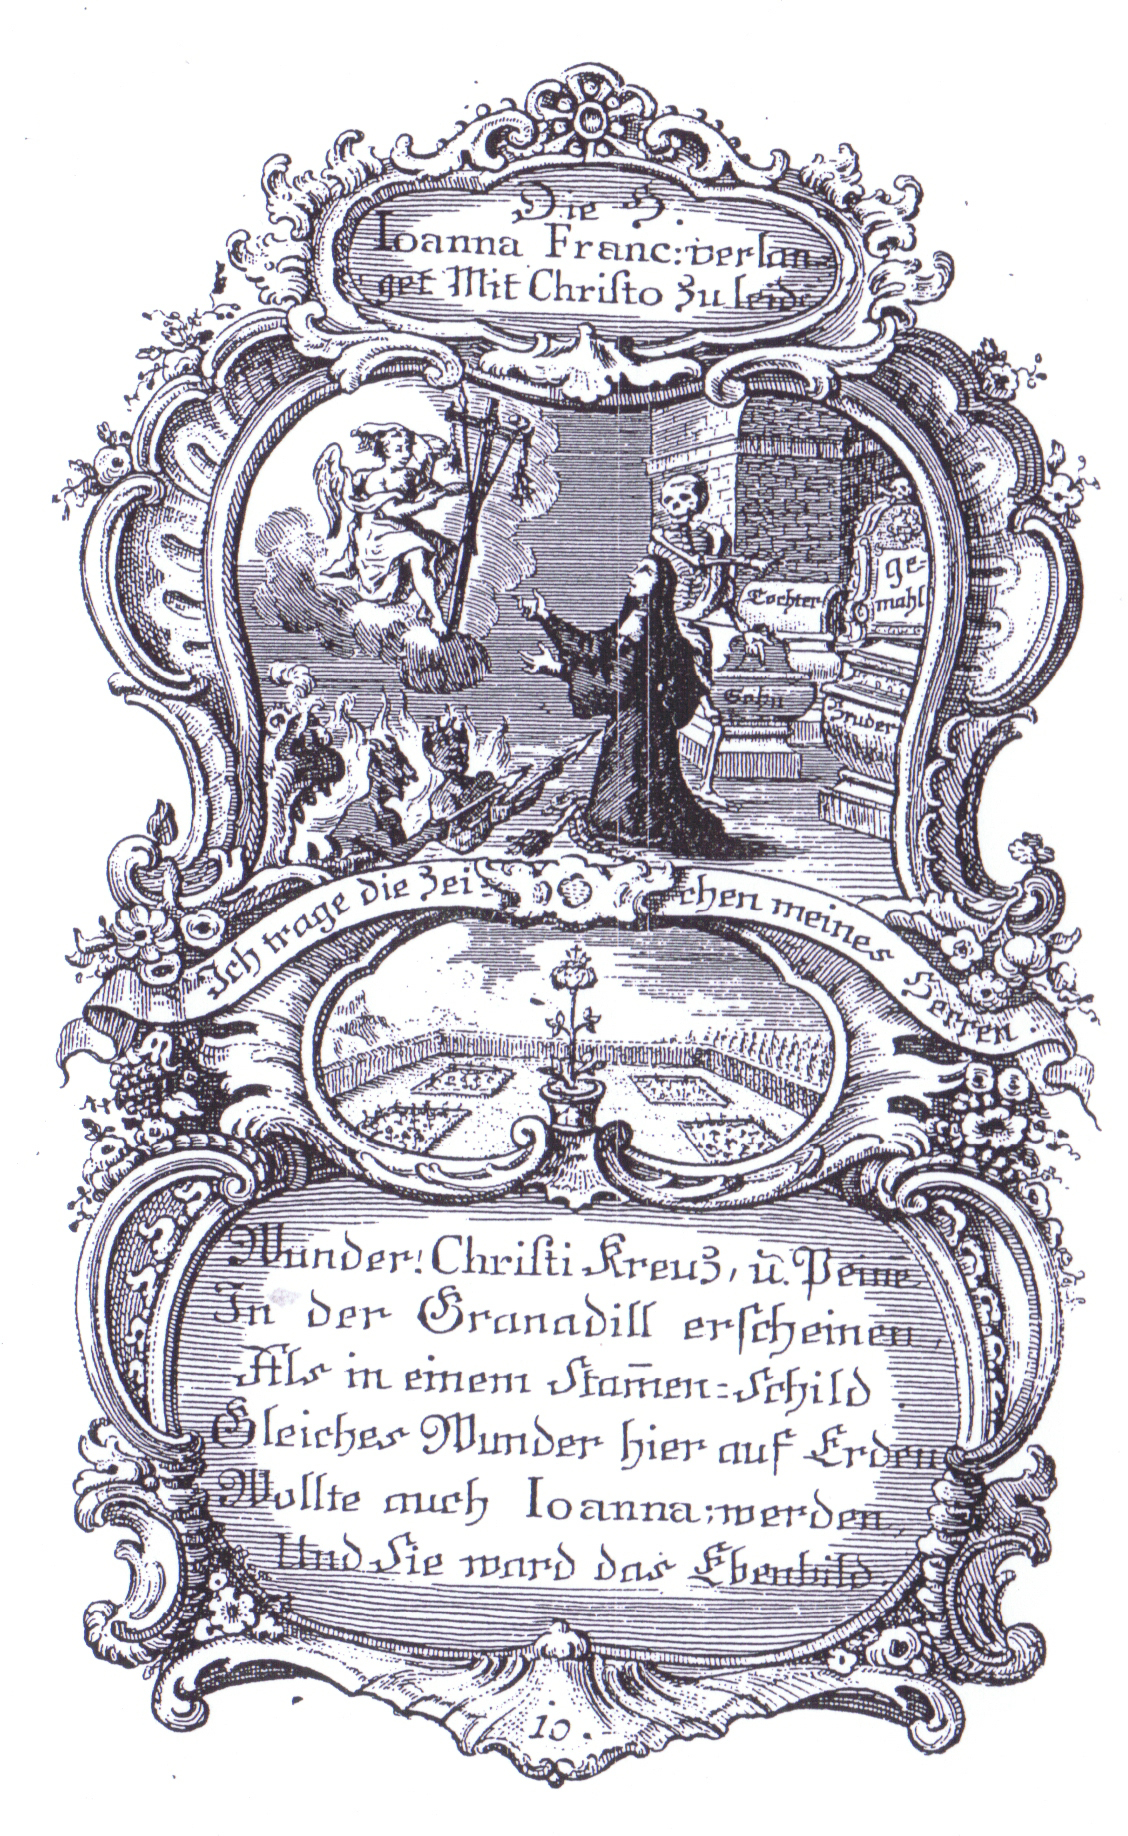 Die H.
Ioanna Franc: verlan=
get Mit Christo Zu leidē
Tochter
ge-
mahl
Sohn
Bruder
Ich trage die Zei=
chen meines
Herren.
Wunder! Christi Kreuz, ū. Peine
In der Granadill erscheinen,
Als in einem Stam̄en=Schild.
Gleiches Wunder hier auf Erden
Wollte auch Ioanna; werden,
Und Sie ward das Ebenbild
10.